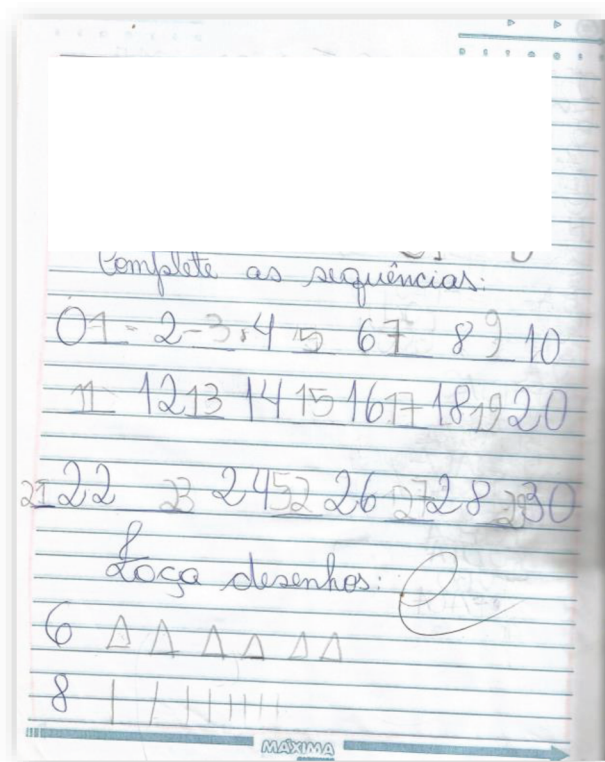 Complete as sequências:
01 - 2 - 3 . 4 5 6 7 8 9 10
11 12 13 14 15 16 17 18 19 20
21 22 23 24 52 26 27 28 29 30
Faça desenhos:
6
8
MÁXIMA